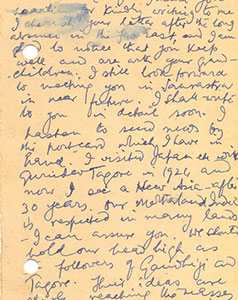 heart for kindly writing to me
I cherish your letter after the long
absence in the Far East, and I am
glad to notice that you keep
well and are with your grand-
children. I still look forward
to meeting you in Saurastra
in near future. I shall write
to you in detail soon. I
hasten to send news by
the postcard which I have in
hand. I visited Japan etc with
Gurudev Tagore in 1924, and
now I see a New Asia - after
30 years, our Motherland India
is respected in many lands
- I can assure you. We should
hold our head high as
followers of Gandhiji and
Tagore. Their ideas are
reaching the masses